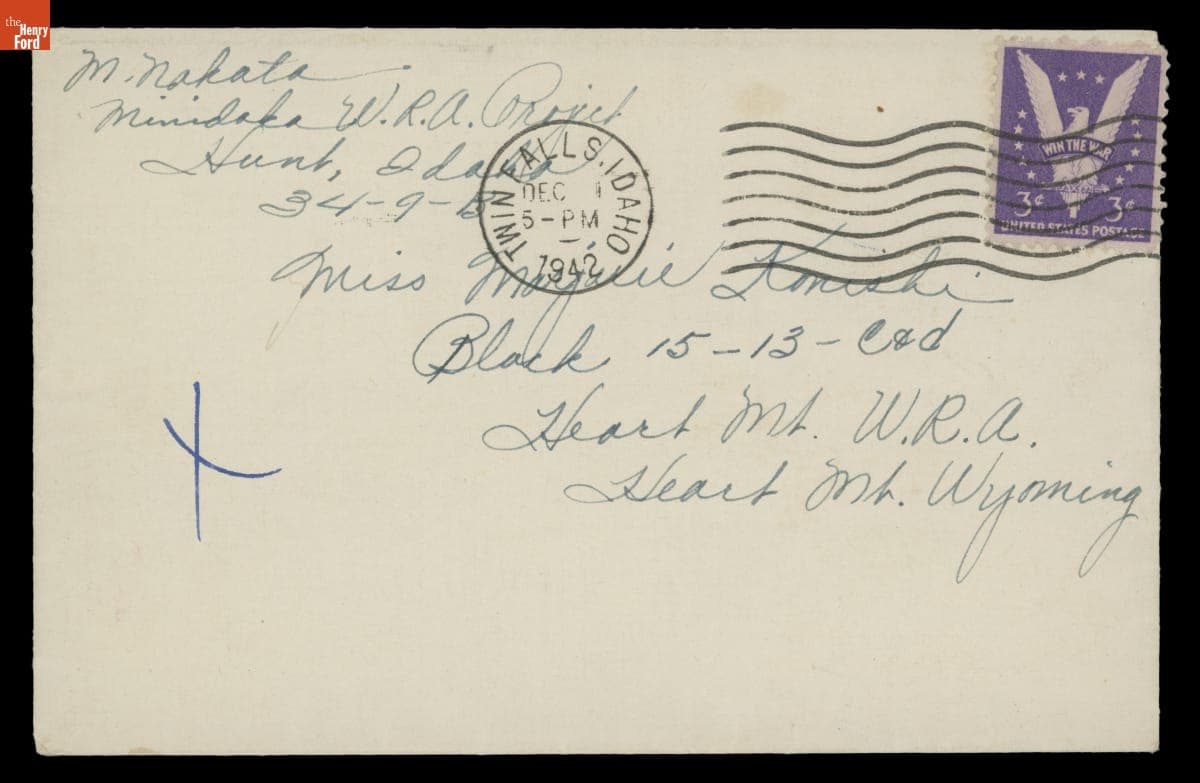 the
Henry
Ford
M. Nakata
Minidoka W.R.A. Project
Hunt, Idaho
34-9-B
TWIN FALLS, IDAHO
DEC 1
5-PM
1942
WIN THE WAR
3¢ 3¢
UNITED STATES POSTAGE
Miss Marjorie Konishi
Block 15-13-C&d
Heart Mt. W.R.A.
Heart Mt. Wyoming